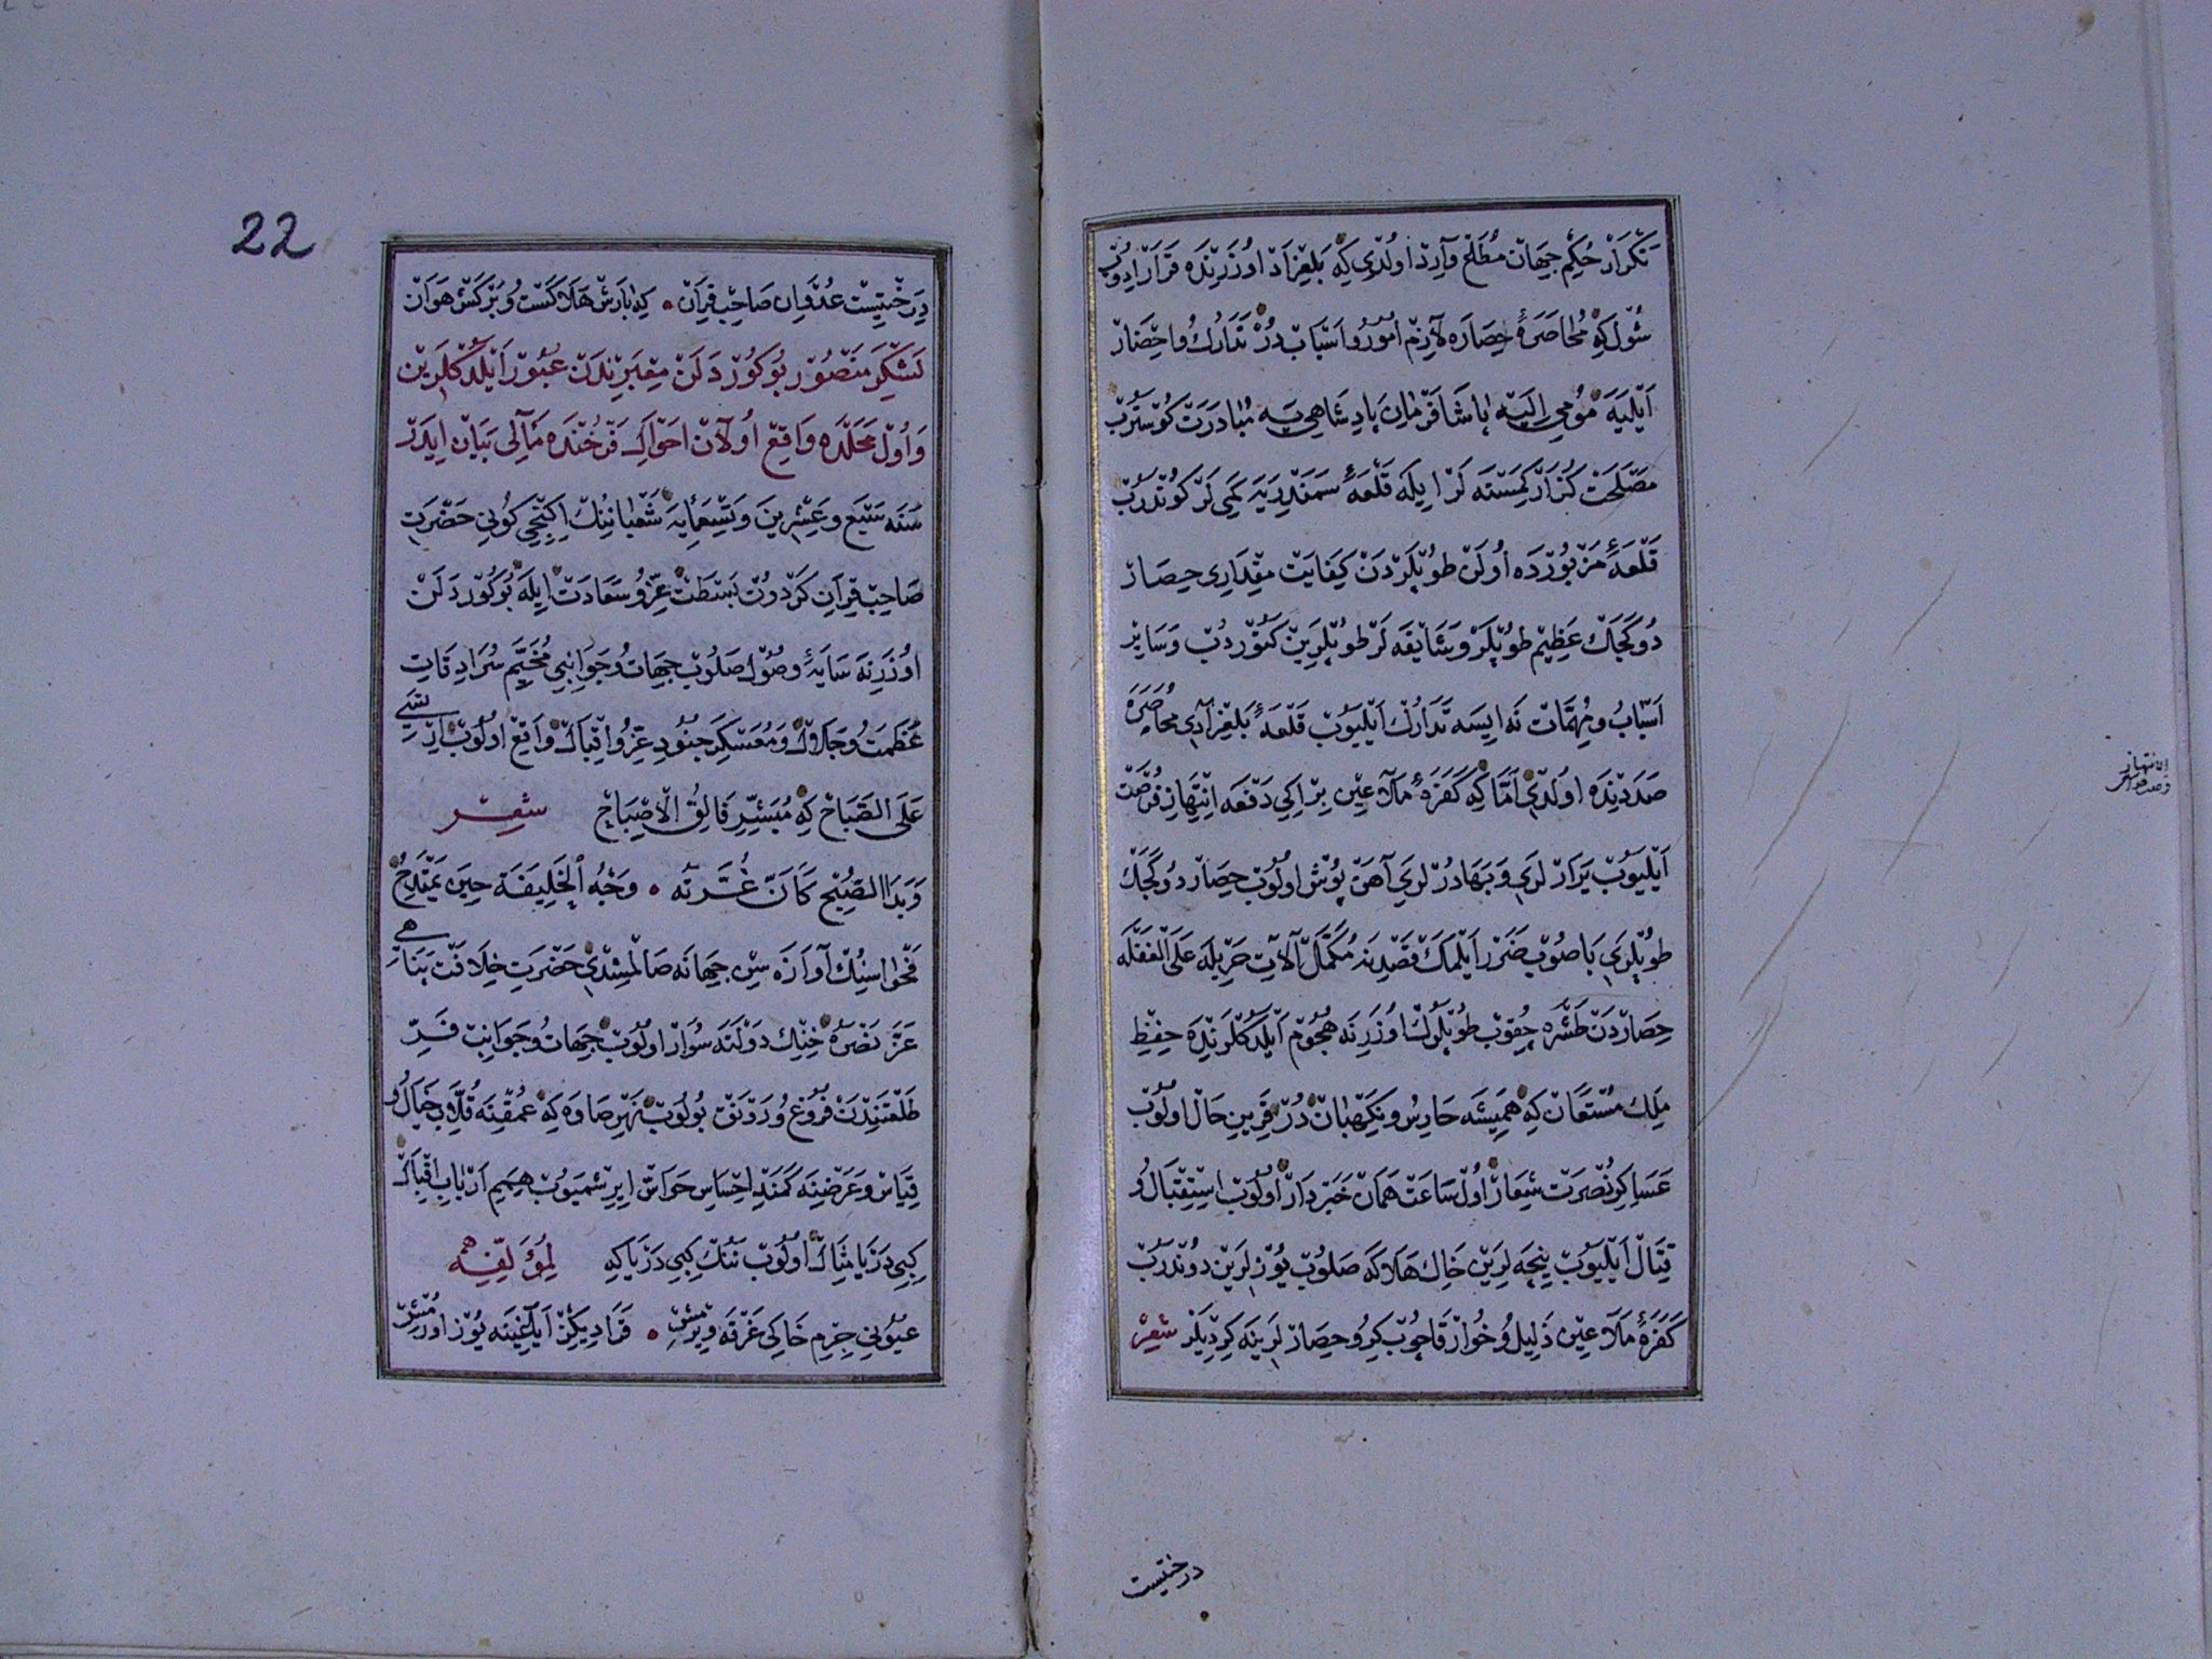 تكرار حكم جهان مطاع وارد اولدی كه بلغراد اوزرنده قرار ایدوب
شول كه محاصرهٔ حصاره لازم امور و اسباب در تدارك و احضار
ایلیه مومی الیه پاشا فرمان پادشاهی یه مبادرت كوستروب
مصلحت كزار كمسنه لر ایله قلعهٔ سمندریه یه كمی لر كوندروب
قلعهٔ مزبورده اولن طوپلردن كفایت مقداری حصار
دوكجك عظیم طوپلر و شایقه لر طوپلرین كتوردب و سایر
اسباب و مهمات نه ایسه تدارك ایلیوب قلعهٔ بلغرادی محاصره
صددنده اولدی اما كه كفرهٔ ملاعین بر ایكی دفعه انتهاز فرصت
ایلیوب یرار لری و بهادر لری آهن پوش اولوب حصار دوكجك
طوپلری باصوب ضرر ایلمك قصدینه مكمل آلات حربله علی الغفله
حصاردن طشره چقوب طوپلرك اوزرنه هجوم ایلدكلرنده حفظ
ملك مستعان كه همیشه حارس و نكهبان در قرین حال اولوب
عساكر نصرت شعار اول ساعت همان خبردار اولوب استقبال و
قتال ایلیوب نیجه لرین خاك هلاكه صلوب یوزلرین دوندروب
كفرهٔ ملاعین ذلیل و خوار قاچوب كرو حصار لرینه كردیلر شعر
انتهاز
درختیست
22
درختیست عدوان صاحب قران • كه بارش هلاكست و بركش هوان
لشكر منصور بوكوردلن مقبرندن عبور ایلدكلرین
و اول محلده واقع اولان احوال فرخنده مآلی بیان ایدر
سنه سبع و عشرین و تسعمایه شعباننك اكنجی كونی حضرت
صاحب قران كردون بسطت عز و سعادت ایله بوكوردلن
اوزرنه سایهٔ وصول صلوب جهات و جوانبی مخیم سرادقات
عظمت و جلال و معسكر جنود عز و اقبال واقع اولوب ایرتسی
علی الصباح كه مبشر فالق الاصباح شعر
وبدا الصبح كان غرته • وجه الخلیفة حین یمتدح
فحواسنك آوازه سن جهانه صالمشدی حضرت خلافت پناهی
عز نصره خنك دولته سوار اولوب جهات و جوانب فر
طلعتندن فروغ و رونق بولوب نهر صاوه كه عمقنه قلاب خیال و
قیاس و عرضینه كمند احساس حواس ایرشمیوب همم ارباب اقبال
كبی دریا مثال اولوب ننك كبی دریا كه لمؤلفه
عیونی جرم خاكی غرقه ویرمش • قرا دیكز آیاغینه یوز اورمش